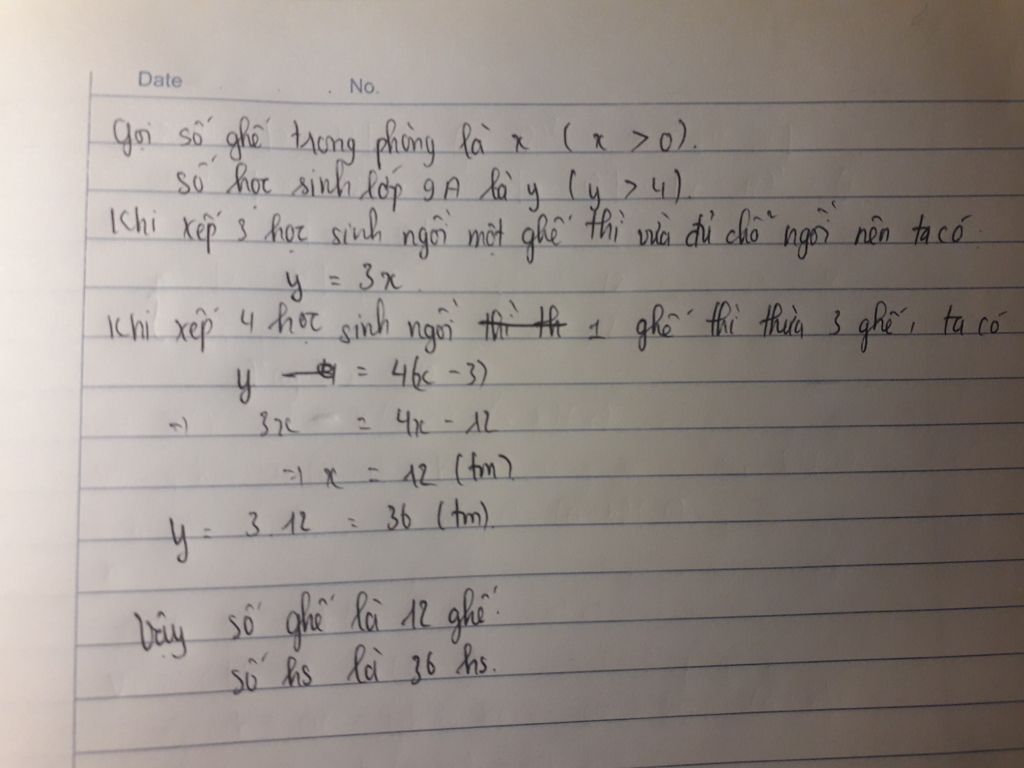 Date No.
Gọi số ghế trong phòng là x (x > 0).
số học sinh lớp 9A là y (y > 4).
Khi xếp 3 học sinh ngồi một ghế thì vừa đủ chỗ ngồi nên ta có
y = 3x
Khi xếp 4 học sinh ngồi thì th 1 ghế thì thừa 3 ghế, ta có
y = 4(x - 3)
=> 3x = 4x - 12
=> x = 12 (tm)
y = 3.12 = 36 (tm).
Vậy số ghế là 12 ghế.
số hs là 36 hs.